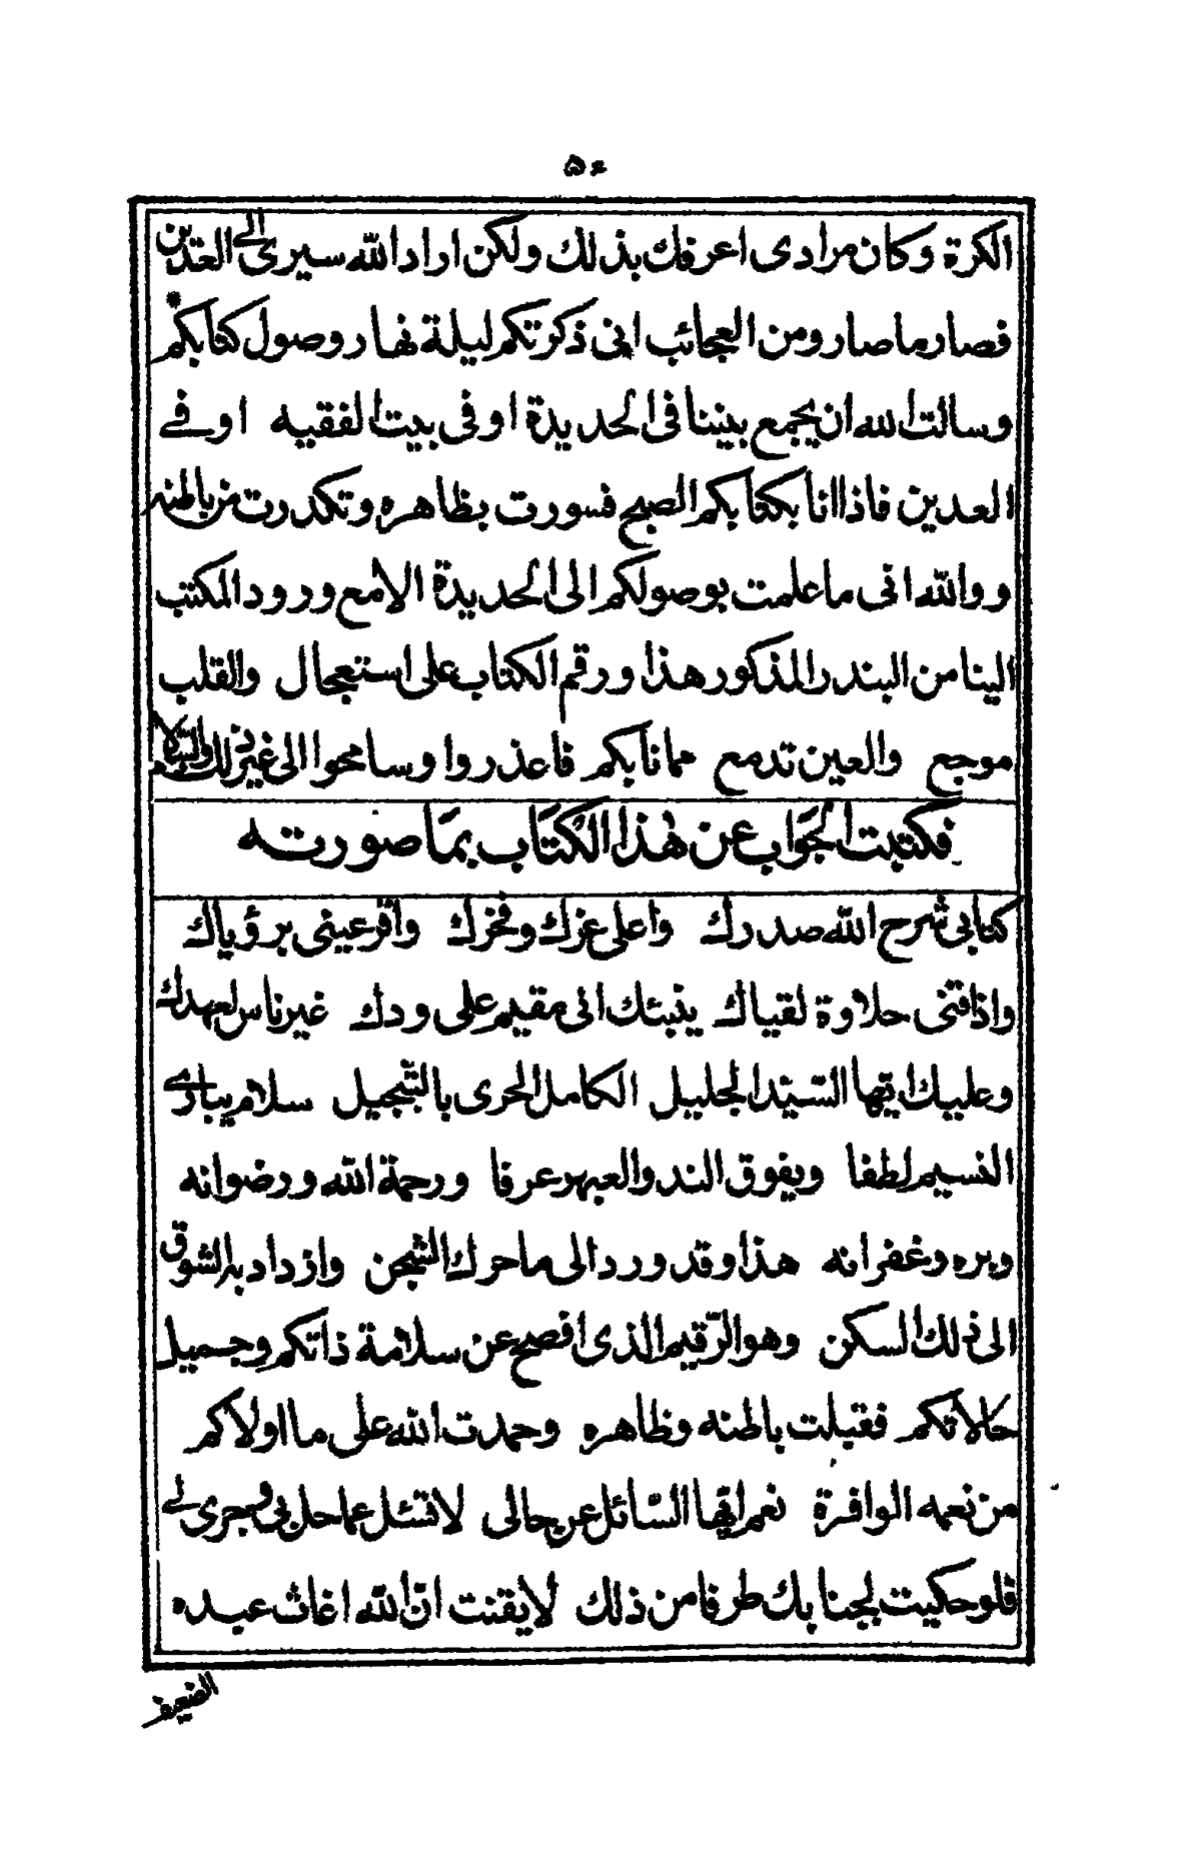 ٥٤
الكرة وكان مرادى اعرفك بذلك ولكن اراد الله سيرى الى العدين
فصار ما صار ومن العجائب انى ذكرتكم ليلة نهار وصول كتابكم
وسالت الله ان يجمع بيننا فى الحديدة او فى بيت الفقيه او فى
العدين فاذا انا بكتابكم الصبح فسورت بظاهره وتكدرت من باطنه
ووالله انى ما علمت بوصولكم الى الحديدة الا مع ورود المكتب
الينا من البندر المذكور هذا ورقم الكتاب على استعجال والقلب
موجع والعين تدمع مما نابكم فاعذروا وسامحوا الى غير ذلك والسلام
فكتبت الجواب عن هٰذا الكتاب بما صورته
كتابى شرح الله صدرك واعلى عزك وفخرك واقر عينى برؤياك
واذاقنى حلاوة لقياك ينبئك انى مقيم على ودك غير ناس لعهدك
وعليك ايّها السّيّد الجليل الكامل الحرى بالتّبجيل سلام يبارى
النسيم لطفا ويفوق الند والعبهر عرفا ورحمة الله ورضوانه
وبره وغفرانه هذا وقد ورد الى ما حرك الشجن وازداد به الشوق
الى ذلك السكن وهو الرّقيم الذى افصح عن سلامة ذاتكم وجميل
حالاتكم فقبلت باطنه وظاهره وحمدت الله على ما اولاكم
من نعمه الوافرة نعم ايّها السّائل عن حالى لا تسئل عما حل بى وجرى لى
فلو حكيت لجنابك طرفا من ذلك لايقنت انّ الله اغاث عبده
الضعيف